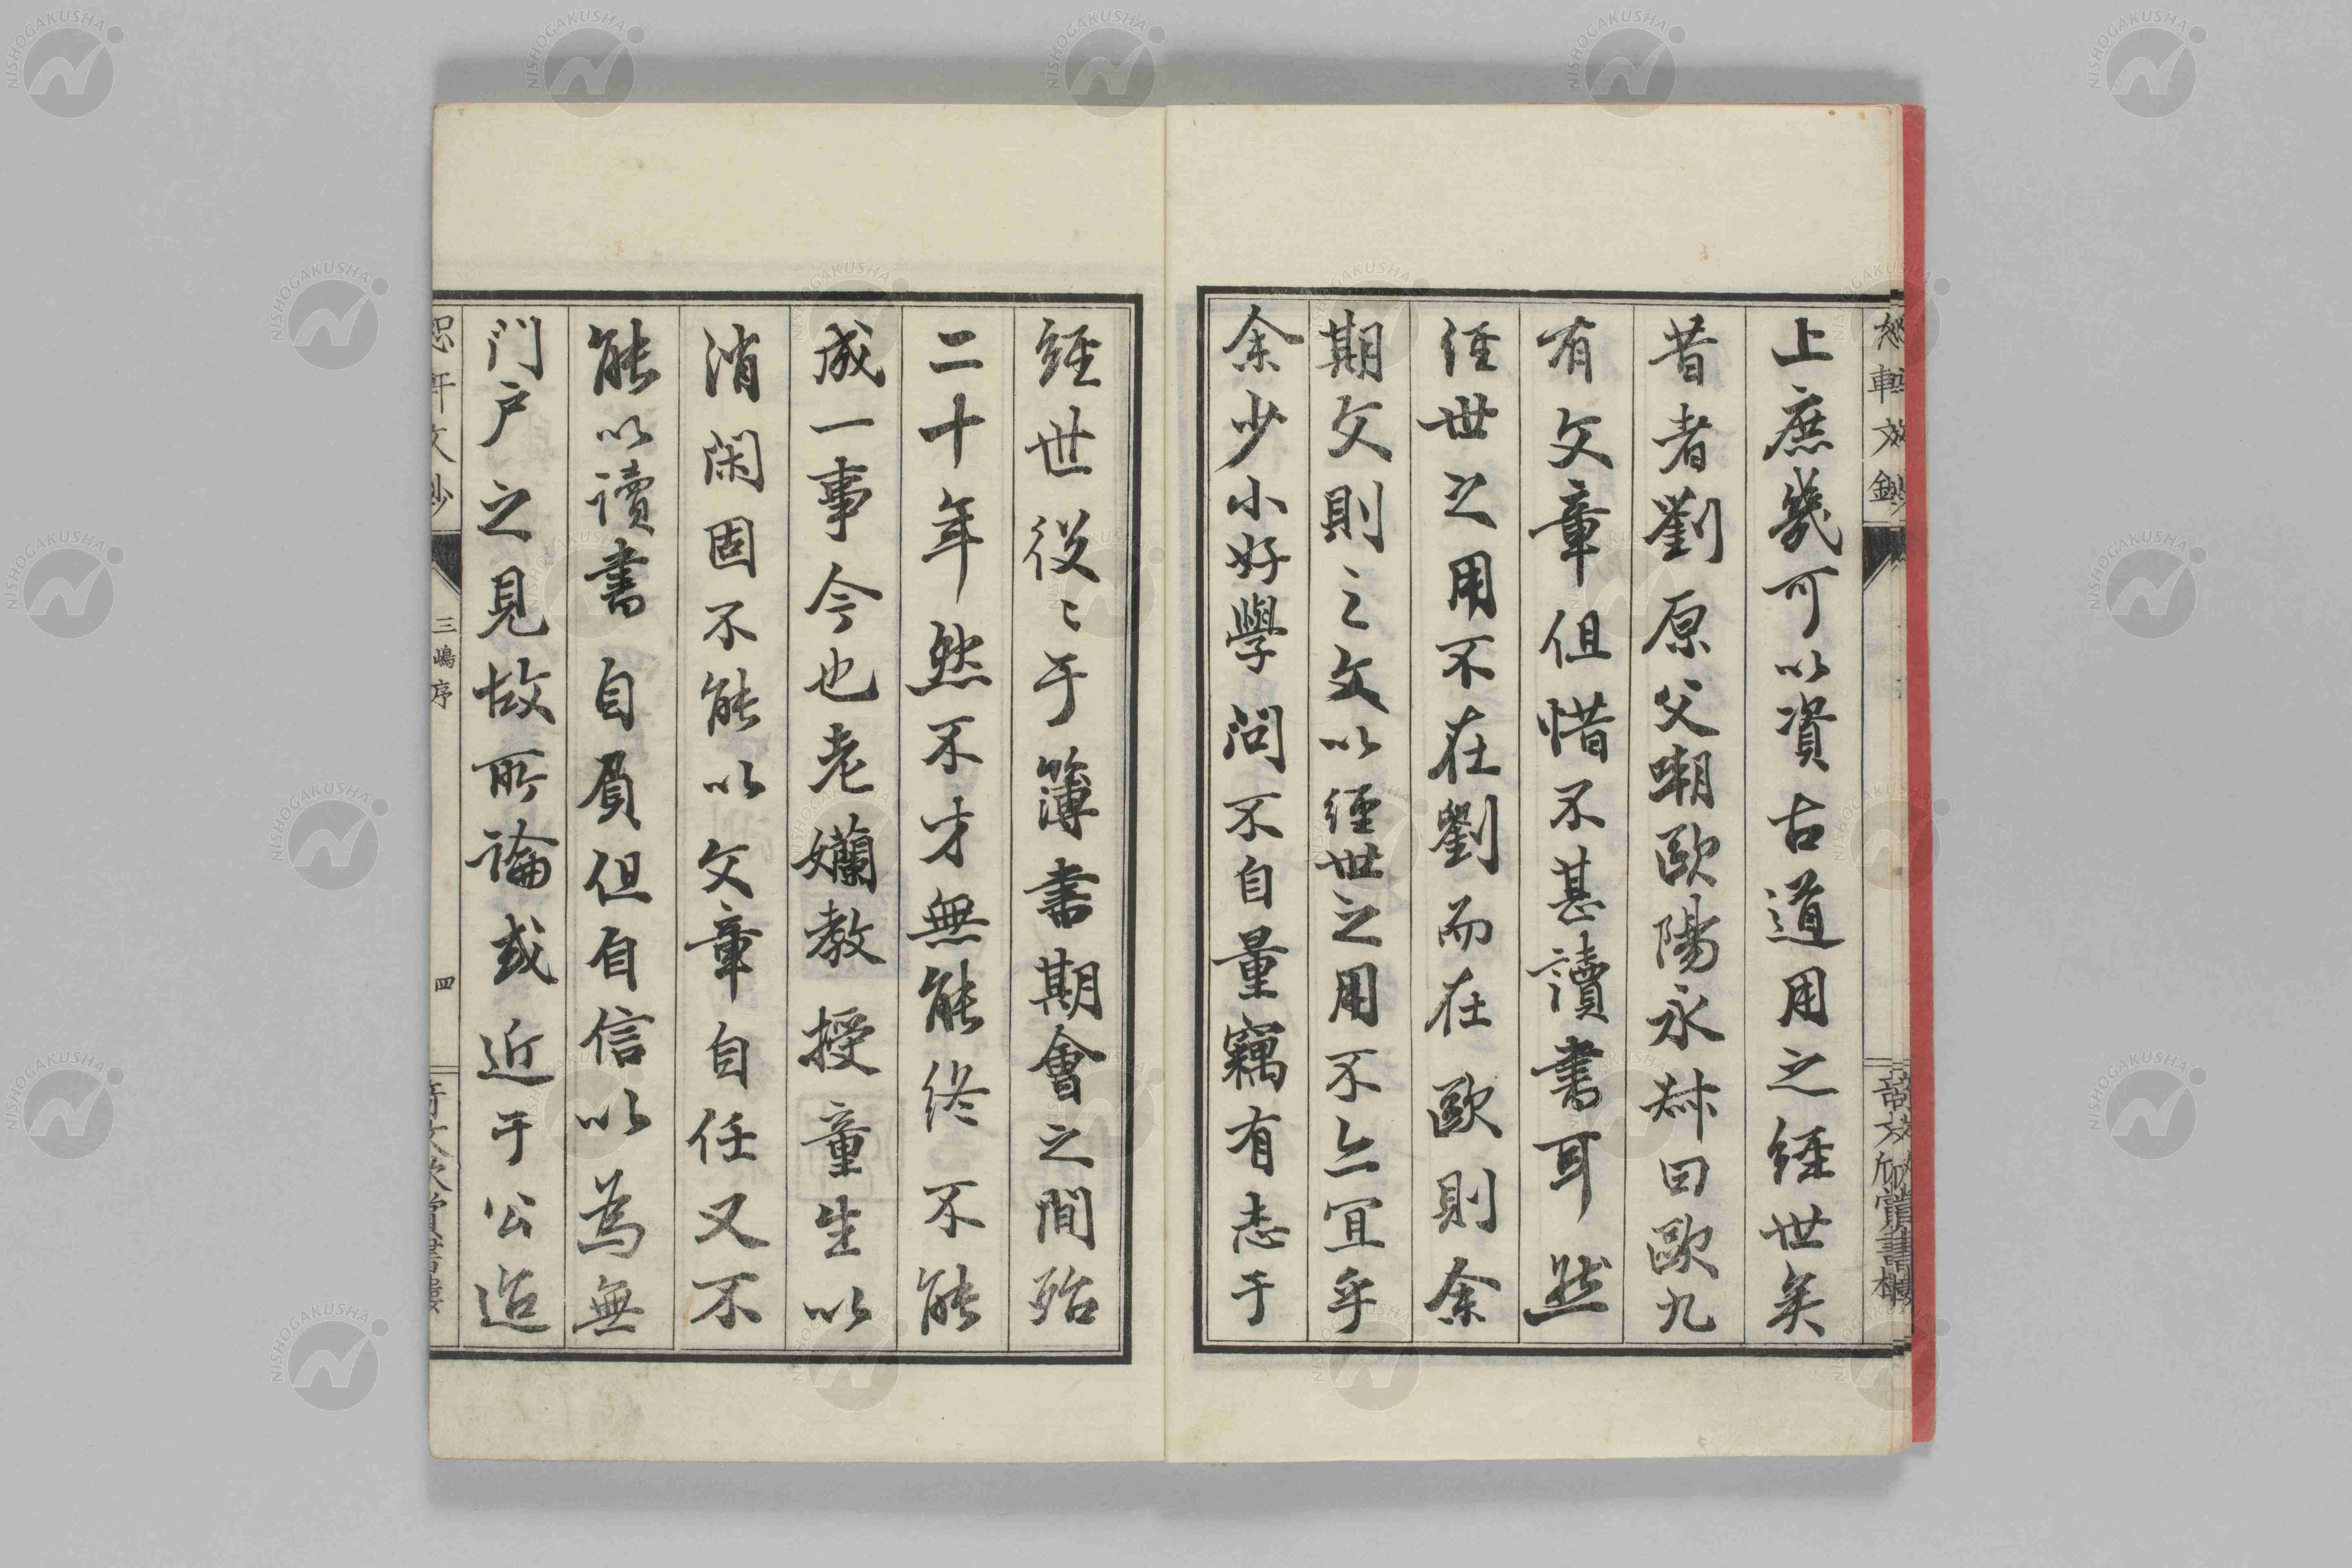 上庶幾可以資古道用之經世矣
昔者劉原父嘲歐陽永叔曰歐九
有文章但惜不甚讀書耳然
經世之用不在劉而在歐則余
期父則之文以經世之用不亦宜乎
余少小好學問不自量竊有志于
經世役々于簿書期會之間殆
二十年然不才無能終不能
成一事今也老嬾教授童生以
消閑固不能以文章自任又不
能以讀書自屓但自信以為無
門戶之見故所論或近于公造
三嶋序
四
NISHOGAKUSHA